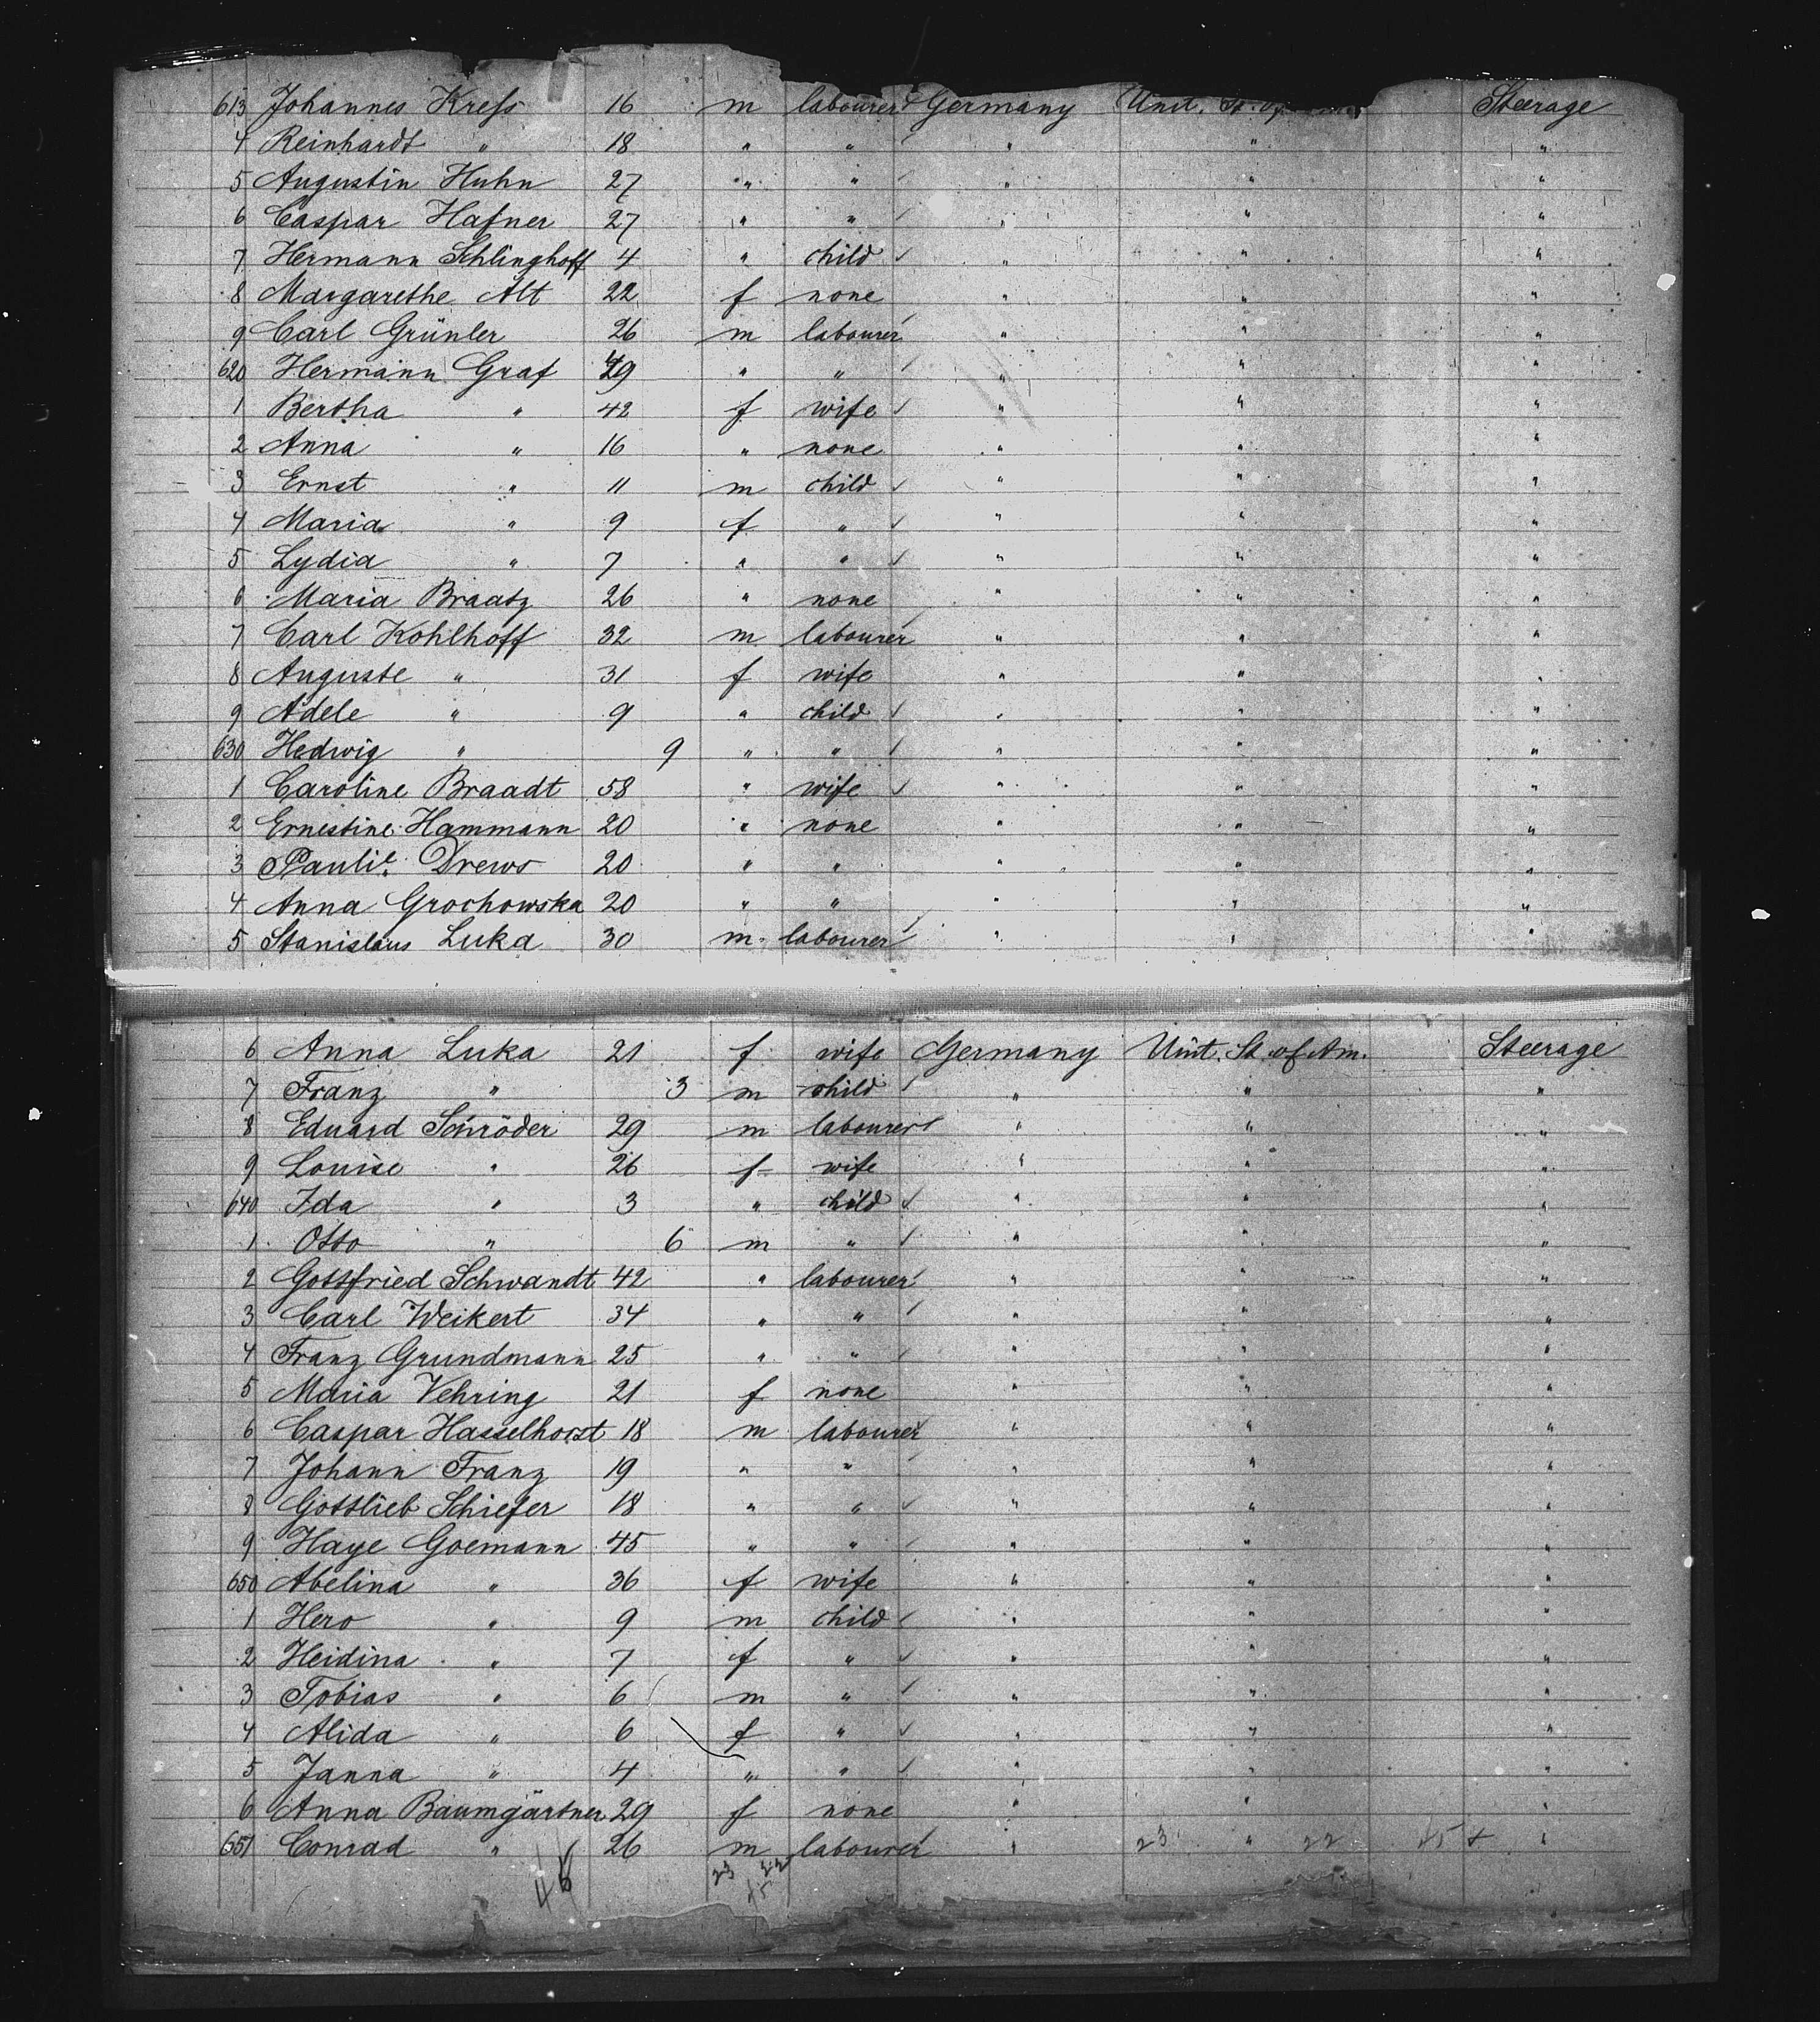 613 Johannes Kreſs 16 m labourer Germany Unit. St. of Steerage
4 Reinhardt " 18 " " " " "
5 Augustin Huhn 27 " " " " "
6 Caspar Hafner 27 " " " " "
7 Hermann Schlinghoff 4 " child " " "
8 Margarethe Alt 22 f none " " "
9 Carl Grünler 26 m labourer " " "
620 Hermann Graf 49 " " " " "
1 Bertha " 42 f wife " " "
2 Anna " 16 " none " " "
3 Ernst " 11 m child " " "
4 Maria " 9 f " " " "
5 Lydia " 7 " " " " "
6 Maria Braatz 26 " none " " "
7 Carl Kohlhoff 32 m labourer " " "
8 Auguste " 31 f wife " " "
9 Adele " 9 " child " " "
630 Hedwig " 9 " " " " "
1 Caroline Braadt 58 " wife " " "
2 Ernestine Hammann 20 " none " " "
3 Paulie Drews 20 " " " " "
4 Anna Grochowska 20 " " " " "
5 Stanislaus Luka 30 m labourer " " "
6 Anna Luka 21 f wife Germany Unit. St. of Am. Steerage
7 Franz " 3 m child " " "
8 Eduard Schröder 29 m labourer " " "
9 Louise " 26 f wife " " "
640 Ida " 3 " child " " "
1 Otto " 6 m " " " "
2 Gottfried Schwandt 42 " labourer " " "
3 Carl Weikert 34 " " " " "
4 Franz Grundmann 25 " " " " "
5 Maria Vehring 21 f none " " "
6 Caspar Hasselhorst 18 m labourer " " "
7 Johann Franz 19 " " " " "
8 Gottlieb Schiefer 18 " " " " "
9 Haye Goemann 45 " " " " "
650 Abelina " 36 f wife " " "
1 Hero " 9 m child " " "
2 Heidina " 7 f " " " "
3 Tobias " 6 m " " " "
4 Alida " 6 f " " " "
5 Janna " 4 " " " " "
6 Anna Baumgärtner 29 f none " " "
657 Conrad " 26 m labourer " 23 " 22 45 + "
23 22
45